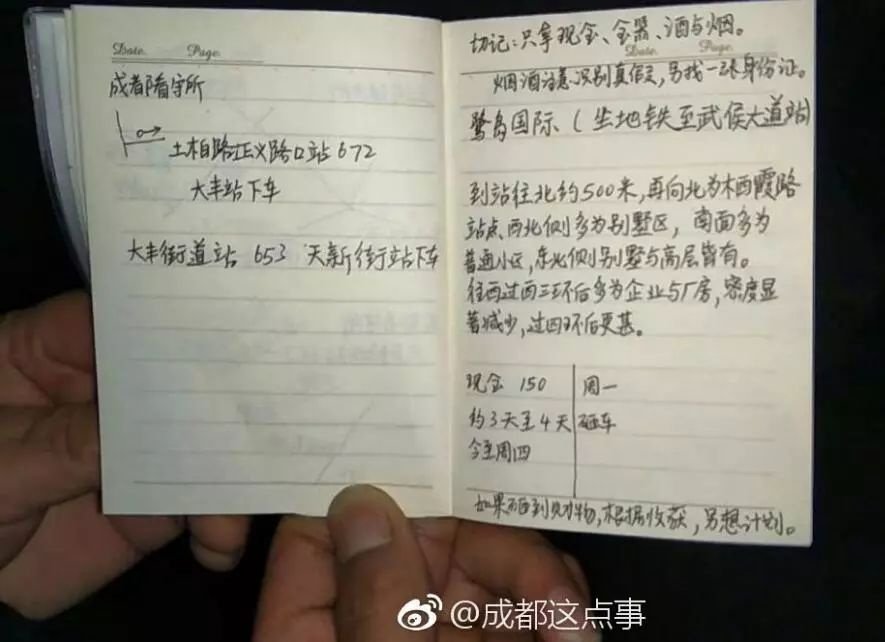 Date.     Page.
成都看守所
土柏路正义路口站 672
大丰站下车
大丰街道站 653 天新街站下车
切记：只拿现金、金器、酒与烟。
Date.     Page.
烟酒注意识别真假，另找一张身份证。
鹭岛国际（坐地铁至武侯大道站）
到站往北约500米，再向北为木西霞路
站点，西北侧多为别墅区，南面多为
普通小区，东北侧别墅与高层皆有。
往西过西三环后多为企业与厂房，密度显
著减少，过四环后更甚。
现金 150 周一
约3天至4天 砸车
今至周四
如果砸到财物，根据收获，另想计划。
@成都这点事